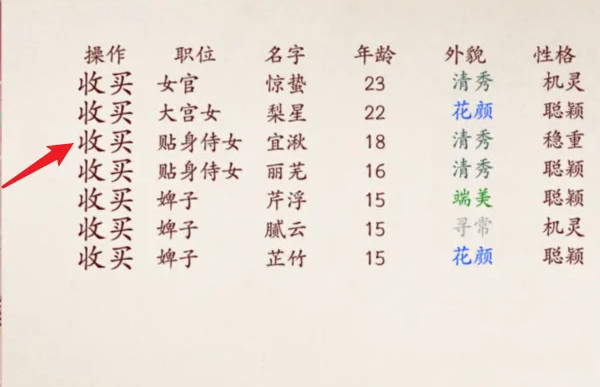 操作 职位 名字 年龄 外貌 性格
收买 女官 惊蛰 23 清秀 机灵
收买 大宫女 梨星 22 花颜 聪颖
收买 贴身侍女 宜湫 18 清秀 稳重
收买 贴身侍女 丽芜 16 清秀 聪颖
收买 婢子 芹浮 15 端美 聪颖
收买 婢子 腻云 15 寻常 机灵
收买 婢子 芷竹 15 花颜 聪颖